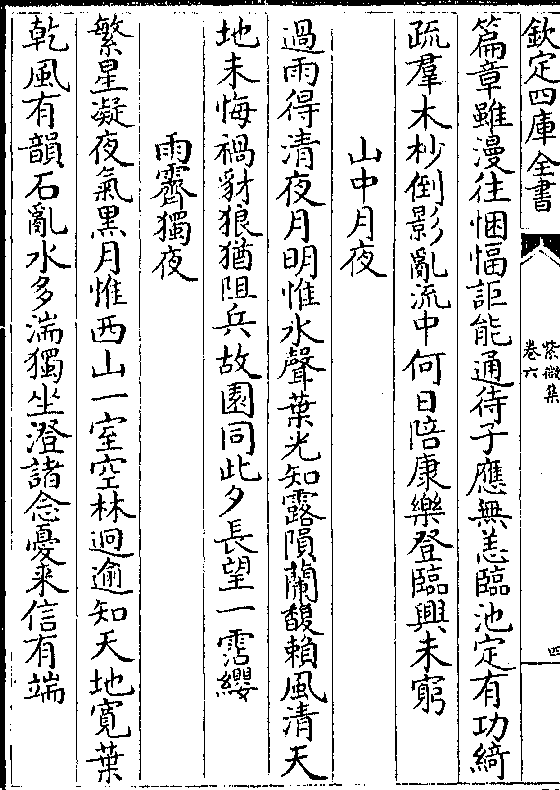 欽定四庫全書
紫微集
卷六
四
篇章雖漫往悃愊詎能通待子應無恙臨池定有功綺
疏羣木杪倒影亂流中何日陪康樂登臨興未窮
山中月夜
過雨得清夜月明惟水聲葉光知露隕蘭馥賴風清天
地未悔禍豺狼猶阻兵故園同此夕長望一霑纓
雨霽獨夜
繁星凝夜氣黑月惟西山一室空林迥逾知天地寛葉
乾風有韻石亂水多湍獨坐澄諸念憂来信有端